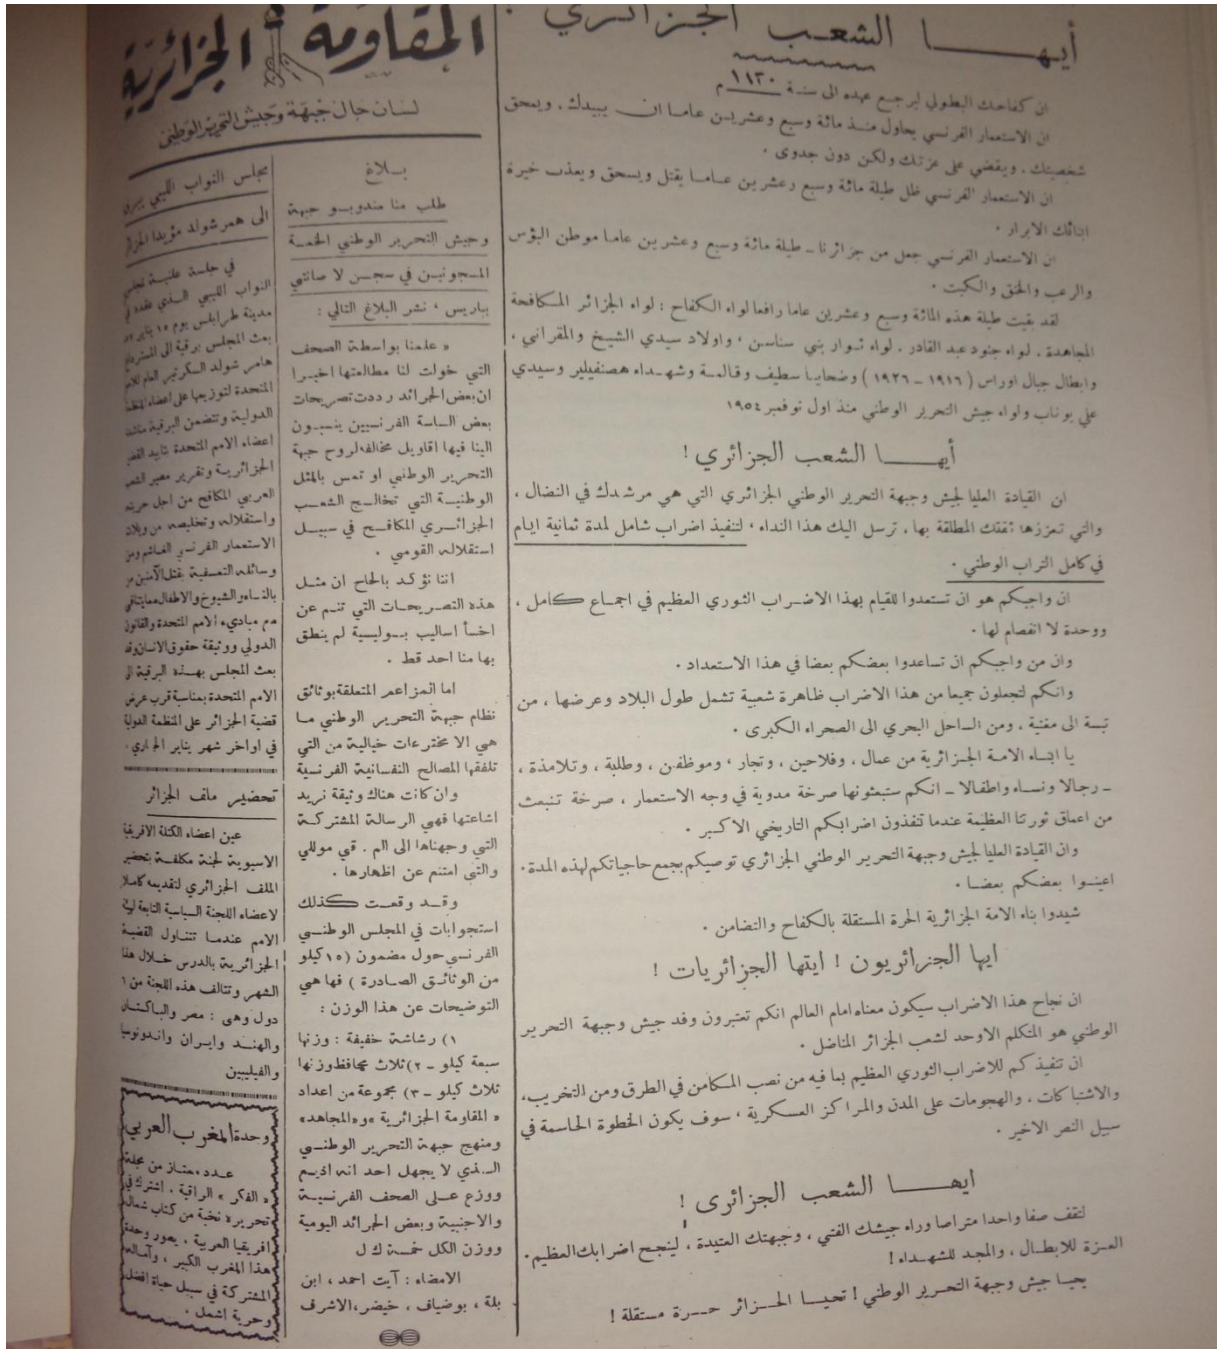 أيهـــا الشعـب الجـزائـري !
ان كفاحك البطولي ليرجع عهده الى سنة ١٨٣٠ م
ان الاستعمار الفرنسي يحاول منـذ مائة وسبع وعشريـن عامـا ان يبيدك ، ويمحق
شخصيتك ، ويقضي على عزتك ولكن دون جدوى .
ان الاستعمار الفرنسي ظل طيلة مائة وسبع وعشرين عامـا يقتل ويسحق ويعذب خيرة
ابنائك الابرار .
ان الاستعمار الفرنسي جعل من جزائرنا ـ طيلة مائة وسبع وعشرين عاما موطن البؤس
والرعب والخنق والكبت .
لقد بقيت طيلة هذه المائة وسبع وعشرين عاما رافعا لواء الكفاح : لواء الجزائر المكافحة
المجاهدة ، لواء جنود عبد القادر ، لواء ثـوار بني سناسن ، واولاد سيدي الشيخ والمقراني ،
وابطال جبال اوراس ( ١٩١٦ ـ ١٩٢٦ ) وضحايا سطيف وقالمة وشهـداء هصنفيلير وسيدي
علي بوناب ولواء جيش التحرير الوطني منذ اول نوفمبر ١٩٥٤
أيهـــا الشعب الجزائري !
ان القيادة العليا لجيش وجبهة التحرير الوطني الجزائري التي هي مرشدك في النضال ،
والتي تعززها ثقتك المطلقة بها ، ترسل اليك هذا النداء ، لتنفيذ اضراب شامل لمدة ثمانية ايام
في كامل التراب الوطني .
ان واجبكم هو ان تستعدوا للقيام بهذا الاضـراب الثوري العظيم في اجمـاع كـامل ،
ووحدة لا انفصام لها .
وان من واجبكم ان تساعدوا بعضكم بعضا في هذا الاستعداد .
وانكم لتجعلون جميعا من هذا الاضراب ظاهرة شعبية تشمل طول البلاد وعرضها ، من
تبسة الى مغنية ، ومن الساحل البحري الى الصحراء الكبرى .
يا ابنـاء الامـة الجـزائرية من عمال ، وفلاحين ، وتجار ، وموظفين ، وطلبة ، وتـلامذة ،
ـ رجالا ونساء واطفالا ـ انكم ستبعثونها صرخة مدوية في وجه الاستعمار ، صرخة تنبعث
من اعماق ثورتنا العظيمة عندما تنفذون اضرابكم التاريخي الاكـبر .
وان القيادة العليا لجيش وجبهة التحرير الوطني الجزائري توصيكم بجمع حاجياتكم لهذه المدة .
اعينـوا بعضكم بعضـا .
شيدوا بناء الامة الجزائرية الحرة المستقلة بالكفاح والتضامن .
ايها الجزائريون ! ايتها الجزائريات !
ان نجاح هذا الاضراب سيكون معناه امام العالم انكم تعتبرون وفد جيش وجبهة التحرير
الوطني هو المتكلم الاوحد لشعب الجزائر المناضل .
ان تنفيذكم للاضراب الثوري العظيم بما فيه من نصب المكامن في الطرق ومن التخريب ،
والاشتباكات ، والهجومات على المدن والمراكز العسكرية ، سوف يكون الخطوة الحاسمة في
سبيل النصر الاخير .
ايهـــا الشعب الجزائرى !
لنقف صفا واحدا متراصا وراء جيشك الفتي ، وجبهتك العتيدة ، لينجح اضرابك العظيم .
العـزة للابطـال ، والمجـد للشهـداء !
يحيـا جيش وجبهة التحـرير الوطني ! تحيـا الجـزائر حـرة مستقلة !
المقاومة الجزائرية
لسان حال جبهة وجيش التحرير الوطني
بـلاغ
طلب منا مندوبـو جبهة
وجيش التحرير الوطني الخمسة
المسجونيـن في سجـن لا صانتي
بباريس ، نشر البلاغ التالي :
« علمنا بواسطة الصحف
التي خولت لنا مطالعتها اخيـرا
ان بعض الجرائد رددت تصريحات
بعض الساسة الفرنسيين ينسبـون
الينا فيها اقاويل مخالفة لروح جبهة
التحرير الوطني او تمس بالمثل
الوطنيـة التي تخالـج الشعـب
الجزائـري المكافـح في سبيـل
استقلاله القومي .
اننا نؤكـد بالحاح ان مثـل
هذه التصريحـات التي تنـم عن
اخسأ اساليب بـوليسية لم ينطق
بها منا احد قط .
اما المزاعم المتعلقة بوثائق
نظام جبهة التحرير الوطني ما
هي الا مخترعات خيالية من التي
تلفقها المصالح النفسانية الفرنسية
وان كانت هناك وثيقة نريد
اشاعتها فهي الرسالة المشتركـة
التي وجهناها الى الم . قي موللي
والتي امتنع عن اظهارها .
وقـد وقعـت كـذلك
استجوابات في المجلس الوطنـي
الفرنسي حول مضمون ( ١٥ كيلو
من الوثائـق الصـادرة ) فها هي
التوضيحات عن هذا الوزن :
١) رشاشة خفيفة : وزنها
سبعة كيلو ـ ٢) ثلاث محافظ وزنها
ثلاث كيلو ـ ٣) مجموعة من اعداد
« المقاومة الجزائرية » و « المجاهد »
ومنهج جبهة التحرير الوطنـي
الـذي لا يجهل احد انه اذيـع
ووزع علـى الصحف الفرنسيـة
والاجنبية وبعض الجرائد اليومية
ووزن الكل خمسة ك ل
الامضاء : آيت احمد ، ابن
بلة ، بوضياف ، خيضر ، الاشرف
مجلس النواب الليبي يبرق
الى همرشولد مؤيدا الجزائر
في جلسة علنيـة لمجلس
النواب الليبي الـذي عقده في
مدينة طرابلس يوم ١٥ يناير ٥٧
بعث المجلس برقية الى المستر داج
هامر شولد السكرتير العام للامم
المتحدة لتوزيعها على اعضاء المنظمة
الدولية وتتضمن البرقية مناشدة
اعضاء الامم المتحدة بتاييد القضية
الجزائريـة وتقرير مصير الشعب
العربي المكافح من اجل حريته
واستقلاله وتخليصه من ويلات
الاستعمار الفرنسي الغـاشم ومن
وسائله التعسفية بقتل الآمنين من
بالنساء والشيوخ والاطفال مما يتنافى
مع مباديء الامم المتحدة والقانون
الدولي ووثيقة حقوق الانسان وقد
بعث المجلس بهـذه البرقية الى
الامم المتحدة بمناسبة قرب عرض
قضية الجزائر على المنظمة الدولية
في اواخر شهر يناير الجاري .
تحضير ملف الجزائر
عين اعضاء الكتلة الافريقية
الاسيوية لجنة مكلفـة بتحضير
الملف الجزائري لتقديمه كامـلا
لاعضاء اللجنة السياسية التابعة لهيئة
الامم عندمـا تتنـاول القضيـة
الجزائريـة بالدرس خـلال هذا
الشهر وتتالف هذه اللجنة من ٦
دول وهى : مصر والباكستـان
والهنـد وايـران واندونوسيا
والفيليبين
وحدة المغرب العربي
عـدد ممتاز من مجلة
« الفكر » الراقية ، اشترك في
تحريره نخبة من كتاب شمال
افريقيا العربية ، يصور وحدة
هذا المغرب الكبير ، وآماله
المشتركة في سبيل حياة افضل
وحرية اشمل .